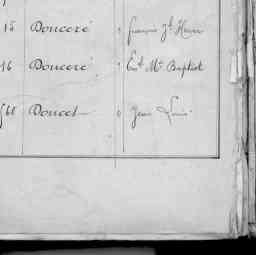 15 Douceré François Jh Henri
16 Douceré Est Me Baptist
Doucet Jean Louis